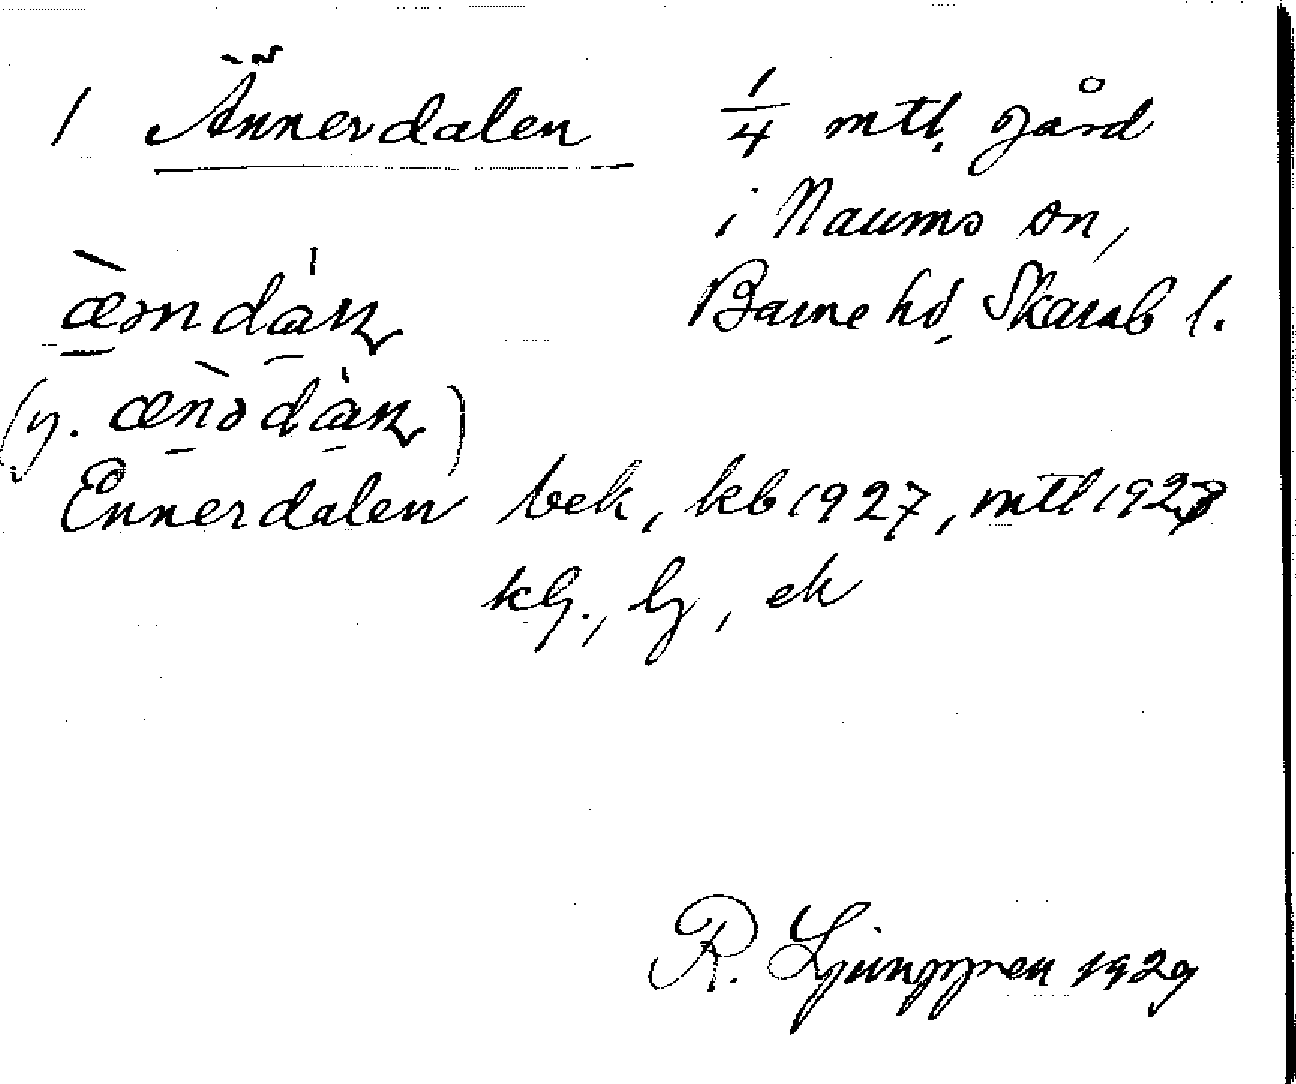 1 Ännerdalen 1/4 mtl. gård
i Naums sn,
Barne hd, Skarab l.
Ennerdalen bek, kb 1927, mtl 1927
kG., lj, ek
R. Ljunggren 1929